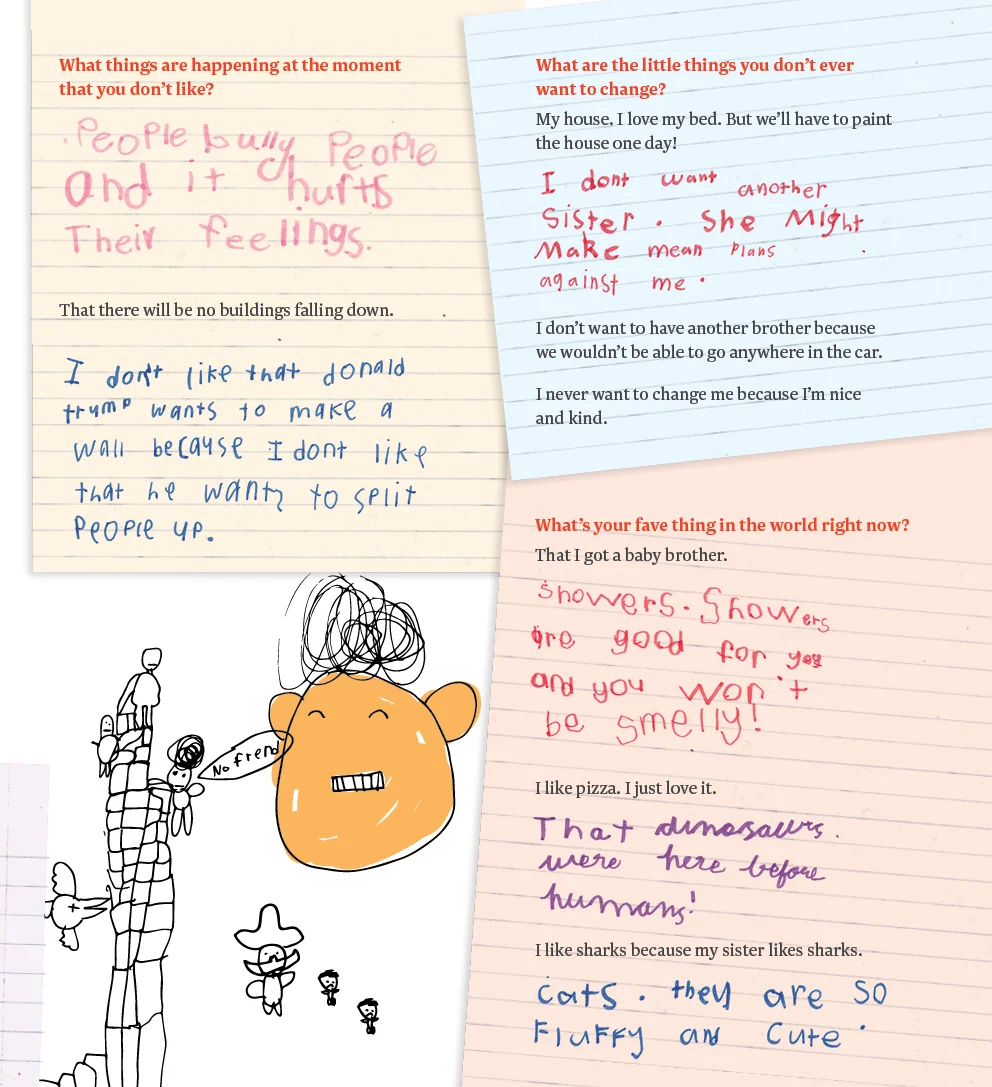 What things are happening at the moment
that you don't like?
.People bully People
and it hurts
Their feelings.
That there will be no buildings falling down.
I don't like that donald
trump wants to make a
wall because I dont like
that he wants to split
People up.
No frend
What are the little things you don't ever
want to change?
My house. I love my bed. But we'll have to paint
the house one day!
I dont want another
Sister. She Might
Make mean Plans
against me.
I don't want to have another brother because
we wouldn't be able to go anywhere in the car.
I never want to change me because I'm nice
and kind.
What's your fave thing in the world right now?
That I got a baby brother.
Showers. Showers
are good for you
and you won't
be smelly!
I like pizza. I just love it.
That dinosaurs
were here before
humans!
I like sharks because my sister likes sharks.
Cats. they are so
Fluffy and Cute.